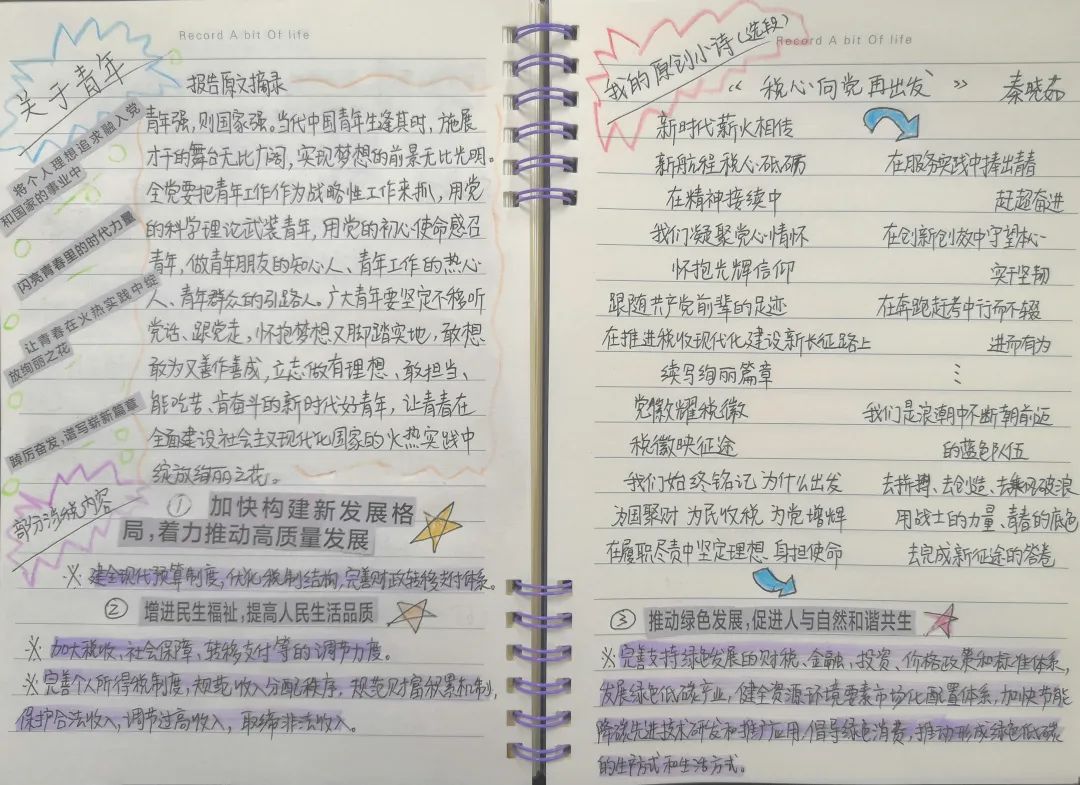 Record A bit Of life
关于青年
报告原文摘录
将个人理想追求融入党
和国家的事业中
闪亮青春里的时代力量
让青春在火热实践中绽
放绚丽之花
踔厉奋发，谱写崭新篇章
青年强，则国家强。当代中国青年生逢其时，施展
才干的舞台无比广阔，实现梦想的前景无比光明。
全党要把青年工作作为战略性工作来抓，用党
的科学理论武装青年，用党的初心使命感召
青年，做青年朋友的知心人、青年工作的热心
人、青年群众的引路人。广大青年要坚定不移听
党话、跟党走，怀抱梦想又脚踏实地，敢想
敢为又善作善成，立志做有理想、敢担当、
能吃苦、肯奋斗的新时代好青年，让青春在
全面建设社会主义现代化国家的火热实践中
绽放绚丽之花。
部分涉税内容
① 加快构建新发展格
局，着力推动高质量发展
※ 健全现代预算制度，优化税制结构，完善财政转移支付体系。
② 增进民生福祉，提高人民生活品质
※ 加大税收、社会保障、转移支付等的调节力度。
※ 完善个人所得税制度，规范收入分配秩序，规范财富积累机制，
保护合法收入，调节过高收入，取缔非法收入。
Record A bit Of life
我的原创小诗（选段）
《税心向党再出发》 秦晓茹
新时代薪火相传
新航程税心砥砺
在精神接续中
我们凝聚党心情怀
怀抱光辉信仰
跟随共产党前辈的足迹
在推进税收现代化建设新长征路上
续写绚丽篇章
党徽耀税徽
税徽映征途
我们始终铭记为什么出发
为国聚财 为民收税 为党增辉
在履职尽责中坚定理想 身担使命
在服务实践中捧出青春
赶超奋进
在创新创效中守望本心
实干坚韧
在奔跑赶考中行而不辍
进而有为
⋮
我们是浪潮中不断朝前迈
的蓝色队伍
去拼搏、去创造、去乘风破浪
用战士的力量、青春的底色
去完成新征途的答卷
③ 推动绿色发展，促进人与自然和谐共生
※ 完善支持绿色发展的财税、金融、投资、价格政策和标准体系，
发展绿色低碳产业，健全资源环境要素市场化配置体系，加快节能
降碳先进技术研发和推广应用，倡导绿色消费，推动形成绿色低碳
的生产方式和生活方式。